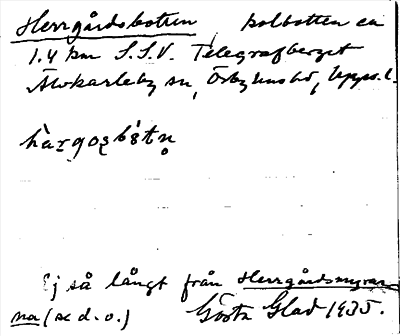 Herrgårdsbotten, kolbotten ca
1.4 km S.S.V. Telegrafberget
Älvkarleby sn, Örbyhus hd, Upps. l.
Ej så långt från Herrgårdsmyrar
na (se d. o.) Gösta Glad 1935.